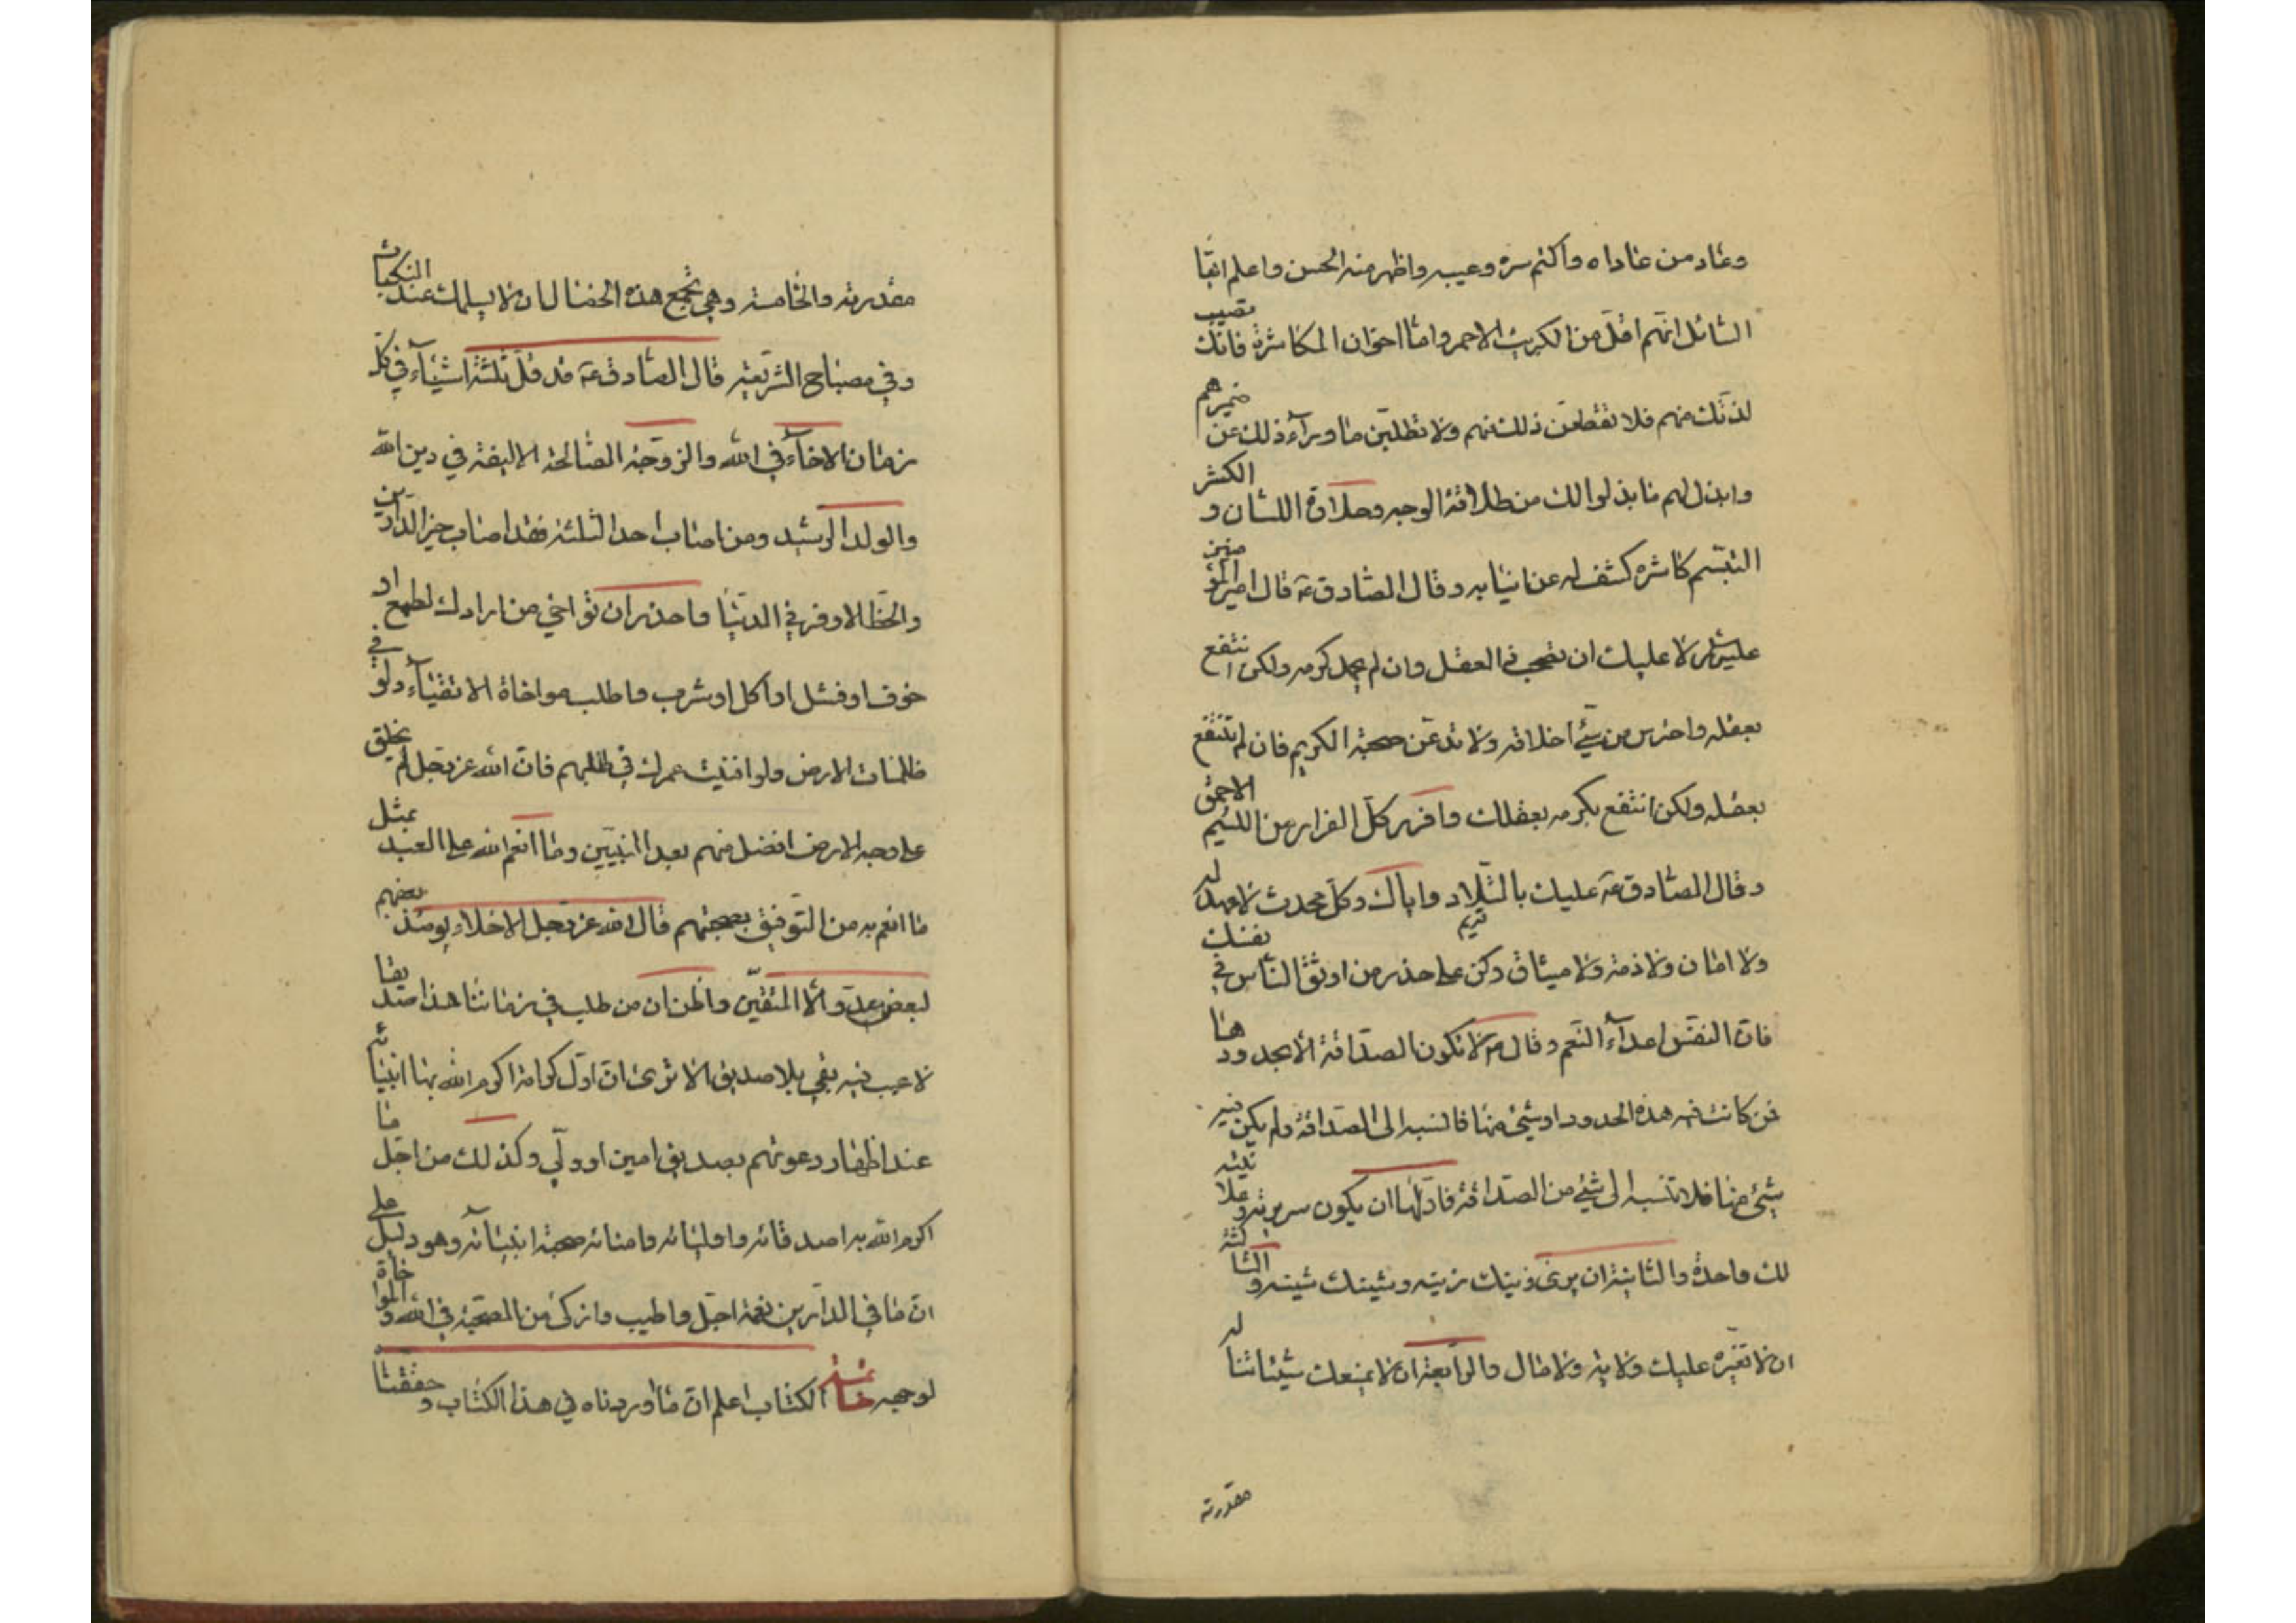 وعاد من عاداه واكتم سره وعيبه واظهر منه الحسن واعلم ايها
السائل انهم اقل من الكبريت الاحمر واما اخوان المكاشرة فانك تصيب
لذتك منهم فلا تقطعن ذلك منهم ولا تطلبن ما وراء ذلك عن ضميرهم
وابذل لهم ما بذلوا لك من طلاقة الوجه وحلاوة اللسان و الكشر
التبسم كاشره كشف له عن انيابه وقال الصادق ع قال امير المؤمنين
عليك ان تصحب ذا العقل وان لم تجد كرمه ولكن انتفع
بعقله واحترس من سيئ اخلاقه ولا تدعن صحبة الكريم فان لم تنتفع
بعقله ولكن انتفع بكرمه بعقلك وافرر كل الفرار من اللئيم الاحمق
وقال الصادق ع عليك بالتلاد واياك وكل محدث لا عهد له
قديم
ولا امان ولا ذمة ولا ميثاق وكن على حذر من اوثق الناس في نفسك
فان الناس اعداء النعم وقال ع لا تكون الصداقة الا بحدودها
فمن كانت فيه هذه الحدود او شيء منها فانسبه الى الصداقة ولم يكن فيه
شيء منها فلا تنسبه الى شيء من الصداقة فاولها ان يكون سريرته وعلانيته
لك واحدة والثانية ان يرى زينك زينه وشينك شينه والثالثة
ان لا تغيره عليك ولاية ولا مال والرابعة ان لا يمنعك شيئا تناله
مقدرته
مقدرته والخامسة وهي تجمع هذه الخصال ان لا يسلمك عند النكبات
وفي مصباح الشريعة قال الصادق ع قد قل ثلثة اشياء في كل
زمان الاخاء في الله والزوجة الصالحة الاليفة في دين الله
والولد الرشيد ومن اصاب احد الثلثة فقد اصاب خير الدارين
والحظ الاوفر في الدنيا واحذر ان تواخي من ارادك لطمع او
خوف او فشل او اكل او شرب واطلب مواخاة الاتقياء ولو في
ظلمات الارض ولو افنيت عمرك في طلبهم فان الله عز وجل لم يخلق
على وجه الارض افضل منهم بعد النبيين وما انعم الله على العبد بمثل
ما انعم به من التوفيق بصحبتهم قال الله عز وجل الاخلاء يومئذ بعضهم
لبعض عدو الا المتقين واظن ان من طلب في زماننا هذا صديقا
لا عيب فيه بقي بلا صديق الا ترى ان اول كرامة اكرم الله بها انبيائه
عند اظهار دعوتهم بصديق امين او ولي وكذلك من اجل ما
اكرم الله به اصدقائه واوليائه وامنائه صحبة انبيائه وهو دليل على
ان ما في الدارين نعمة اجل واطيب وازكى من الصحبة في الله والمواخاة
لوجهه خاتمة الكتاب اعلم ان ما اوردناه في هذا الكتاب و حققنا